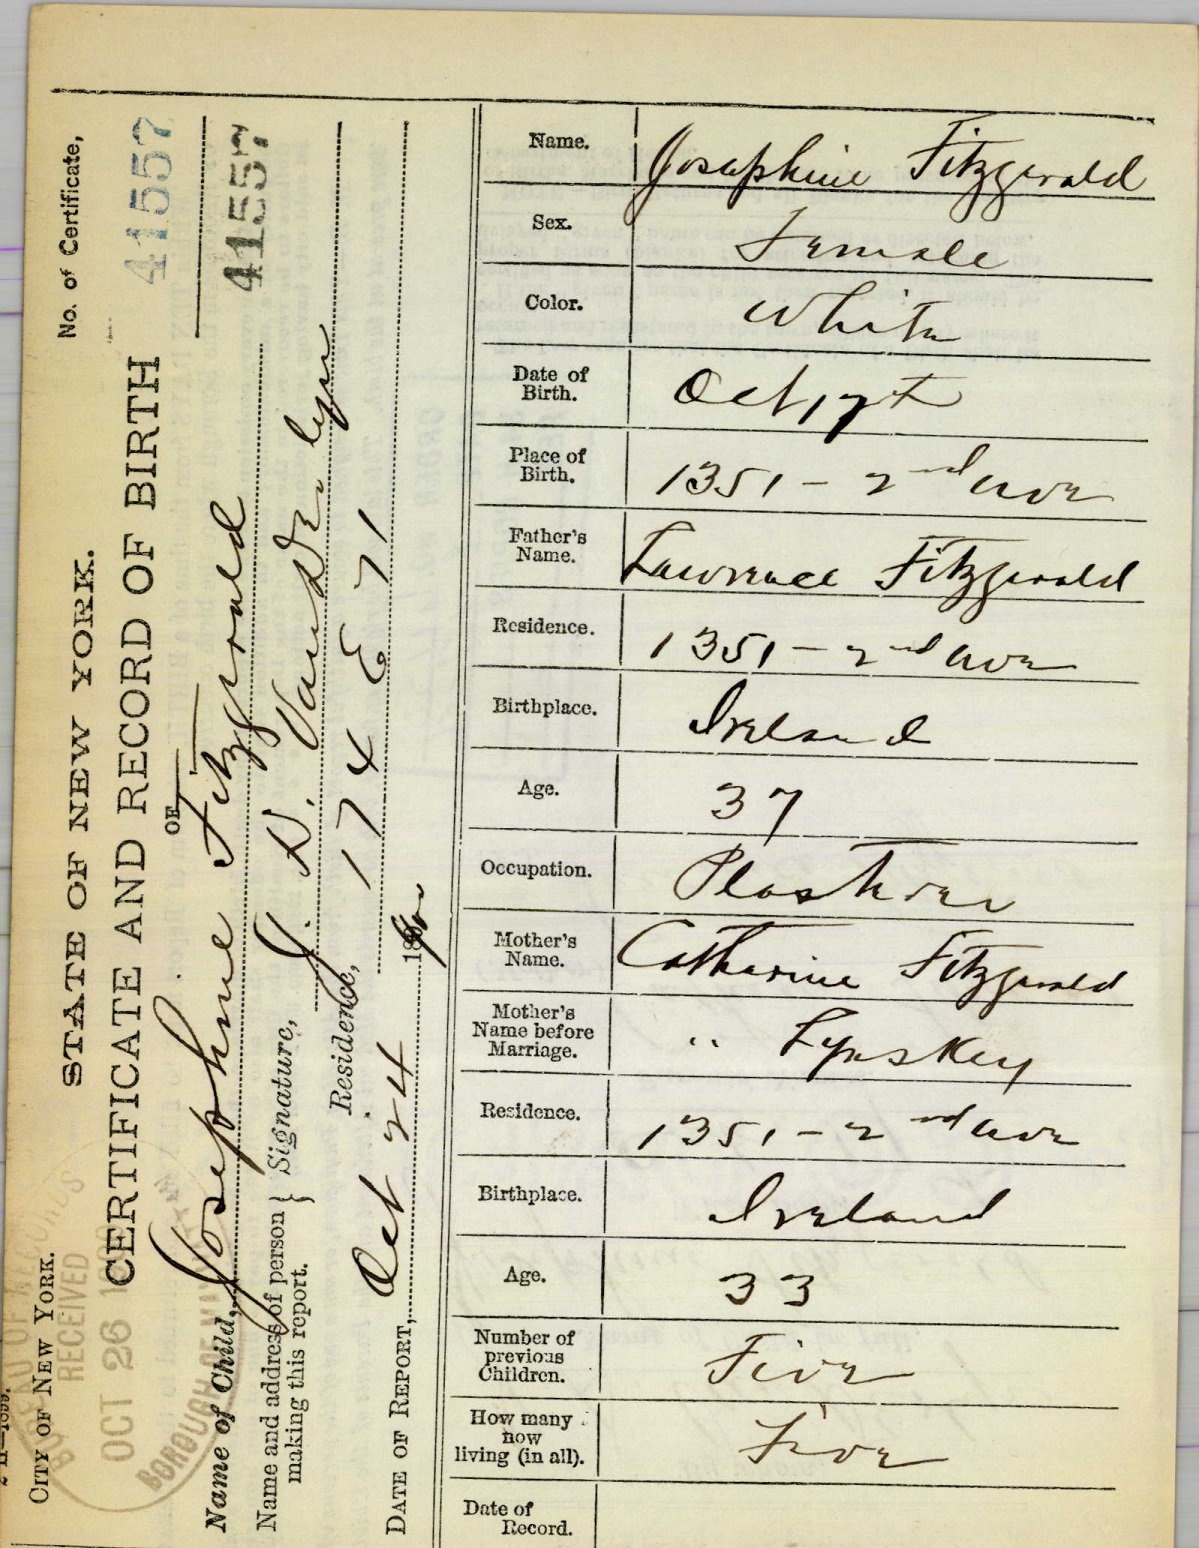 CITY OF NEW YORK.
STATE OF NEW YORK.
No. of Certificate,
CERTIFICATE AND RECORD OF BIRTH
41557
OF
41557
Name of Child, Josephine Fitzgerald
Name and address of person making this report.
Signature, J. D. Van Der lyn
Residence, 174 E 71
DATE OF REPORT, Oct 24
RECEIVED
OCT 26
BOROUGH OF
Name. Josephine Fitzgerald
Sex. Female
Color. White
Date of Birth. Oct 17t
Place of Birth. 1351 - 2nd Ave
Father's Name. Lawrence Fitzgerald
Residence. 1351 - 2nd Ave
Birthplace. Ireland
Age. 37
Occupation. Plasterer
Mother's Name. Catharine Fitzgerald
Mother's Name before Marriage. " Lynskey
Residence. 1351 - 2nd Ave
Birthplace. Ireland
Age. 33
Number of previous Children. Five
How many now living (in all). Five
Date of Record.